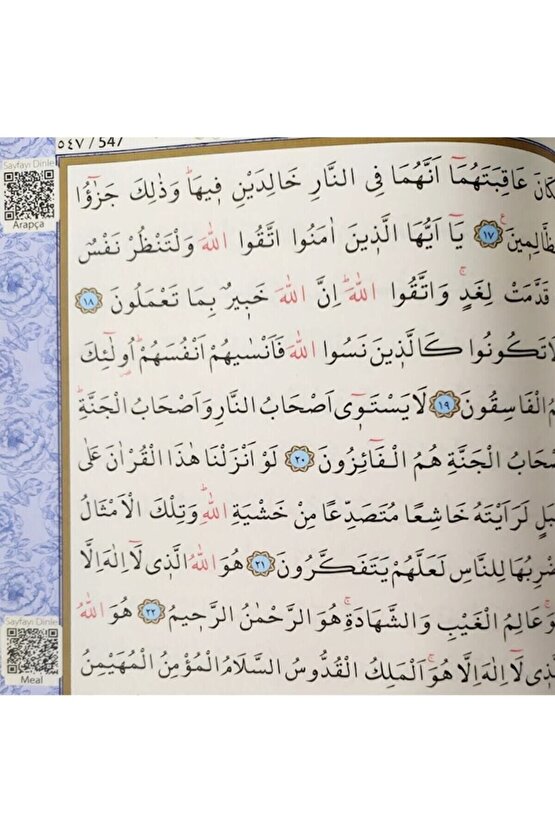 ٥٤٧ / 547
Sayfayı Dinle
Arapça
كَانَ عَاقِبَتَهُمَٓا اَنَّهُمَا فِي النَّارِ خَالِدَيْنِ ف۪يهَاۜ وَذٰلِكَ جَزٰٓؤُا
ظَّالِم۪ينَ۟ ﴿١٧﴾ يَٓا اَيُّهَا الَّذ۪ينَ اٰمَنُوا اتَّقُوا اللّٰهَ وَلْتَنْظُرْ نَفْسٌ
قَدَّمَتْ لِغَدٍۚ وَاتَّقُوا اللّٰهَۜ اِنَّ اللّٰهَ خَب۪يرٌ بِمَا تَعْمَلُونَ ﴿١٨﴾
لَا تَكُونُوا كَالَّذ۪ينَ نَسُوا اللّٰهَ فَاَنْسٰيهُمْ اَنْفُسَهُمْۜ اُو۬لٰٓئِكَ
مُ الْفَاسِقُونَ ﴿١٩﴾ لَا يَسْتَو۪ٓي اَصْحَابُ النَّارِ وَاَصْحَابُ الْجَنَّةِۜ
صْحَابُ الْجَنَّةِ هُمُ الْفَٓائِزُونَ ﴿٢٠﴾ لَوْ اَنْزَلْنَا هٰذَا الْقُرْاٰنَ عَلٰى
بَلٍ لَرَاَيْتَهُ خَاشِعًا مُتَصَدِّعًا مِنْ خَشْيَةِ اللّٰهِۜ وَتِلْكَ الْاَمْثَالُ
ضْرِبُهَا لِلنَّاسِ لَعَلَّهُمْ يَتَفَكَّرُونَ ﴿٢١﴾ هُوَ اللّٰهُ الَّذ۪ي لَٓا اِلٰهَ اِلَّا
وَۚ عَالِمُ الْغَيْبِ وَالشَّهَادَةِۚ هُوَ الرَّحْمٰنُ الرَّح۪يمُ ﴿٢٢﴾ هُوَ اللّٰهُ
لَّذ۪ي لَٓا اِلٰهَ اِلَّا هُوَۚ اَلْمَلِكُ الْقُدُّوسُ السَّلَامُ الْمُؤْمِنُ الْمُهَيْمِنُ
Sayfayı Dinle
Meal